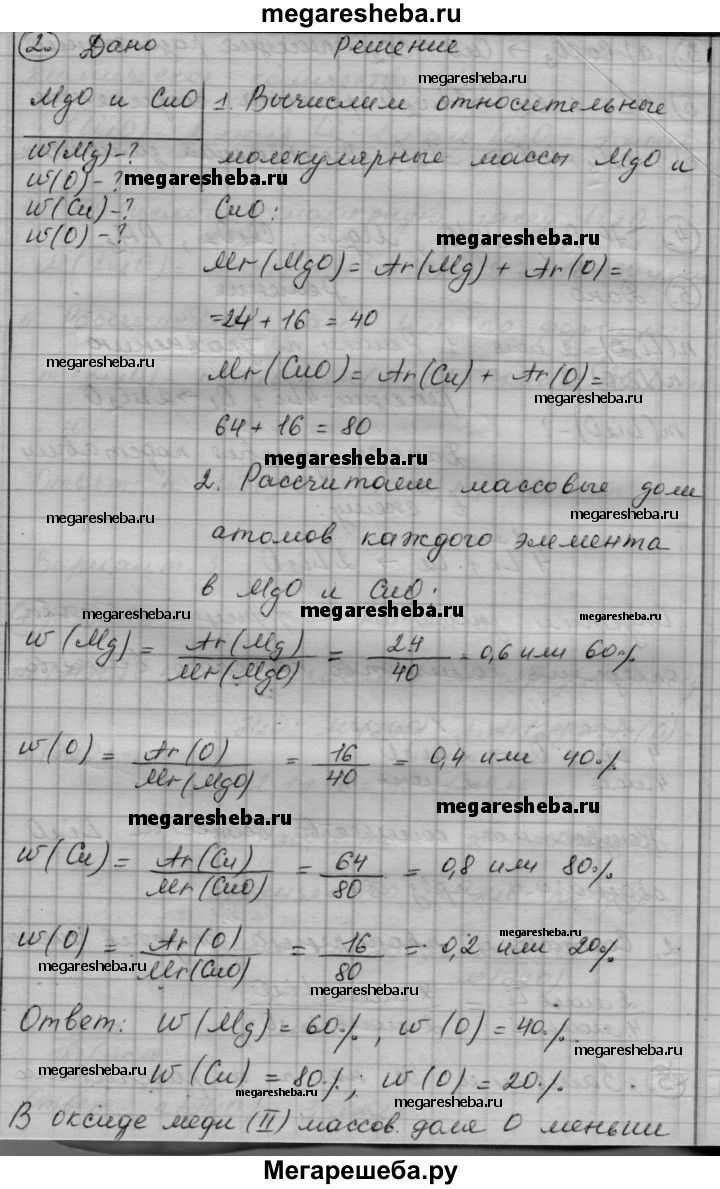 megaresheba.ru
2. Дано Решение
megaresheba.ru
MgO и CuO 1. Вычислим относительные
w(Mg)-? молекулярные массы MgO и
w(O)-? megaresheba.ru
w(Cu)-? CuO:
w(O)-? megaresheba.ru
Mr(MgO) = Ar(Mg) + Ar(O) =
=24 + 16 = 40
megaresheba.ru
Mr(CuO) = Ar(Cu) + Ar(O) =
megaresheba.ru
64 + 16 = 80
megaresheba.ru
2. Рассчитаем массовые доли
megaresheba.ru megaresheba.ru
атомов каждого элемента
в MgO и CuO:
megaresheba.ru megaresheba.ru megaresheba.ru
w(Mg) = Ar(Mg) / Mr(MgO) = 24 / 40 = 0,6 или 60%
w(O) = Ar(O) / Mr(MgO) = 16 / 40 = 0,4 или 40%
megaresheba.ru megaresheba.ru
w(Cu) = Ar(Cu) / Mr(CuO) = 64 / 80 = 0,8 или 80%
megaresheba.ru
w(O) = Ar(O) / Mr(CuO) = 16 / 80 = 0,2 или 20%
megaresheba.ru megaresheba.ru
Ответ: w(Mg) = 60%, w(O) = 40%.
megaresheba.ru
megaresheba.ru w(Cu) = 80%; w(O) = 20%.
megaresheba.ru megaresheba.ru
В оксиде меди (II) массов. доля O меньши
Мегарешеба.ру